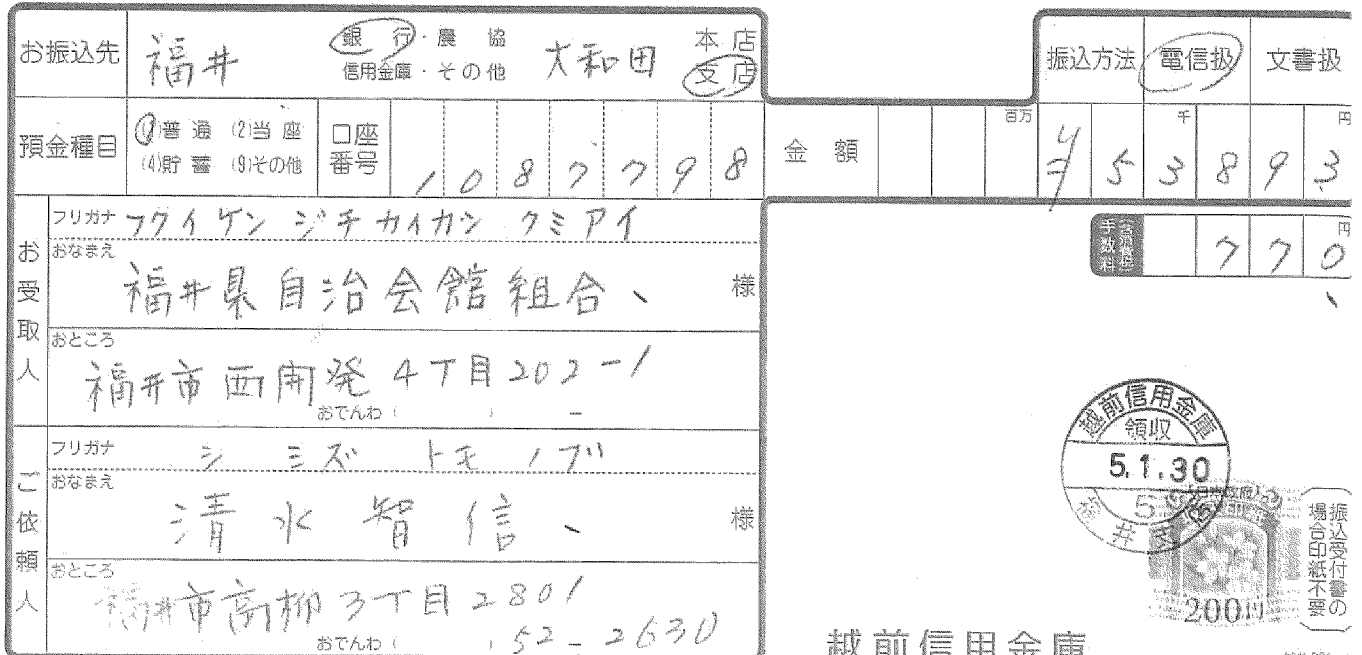 お振込先 福井 銀行・農協 大和田 本店
信用金庫・その他 支店
振込方法 電信扱 文書扱
預金種目 (1)普通 (2)当座
(4)貯蓄 (9)その他
口座番号 1087798
金額 百万 千 円
¥253893
手数料 円
770
お受取人
フリガナ フクイケン ジチカイカン クミアイ
おなまえ
福井県自治会館組合、 様
おところ
福井市西開発4丁目202-1
おでんわ( ) -
ご依頼人
フリガナ シミズ トモノブ
おなまえ
清水智信、 様
おところ
福井市高柳3丁目2801
おでんわ( ) 52-2630
越前信用金庫
領収
5.1.30
200円
振込受付書の
場合印紙不要
越前信用金庫